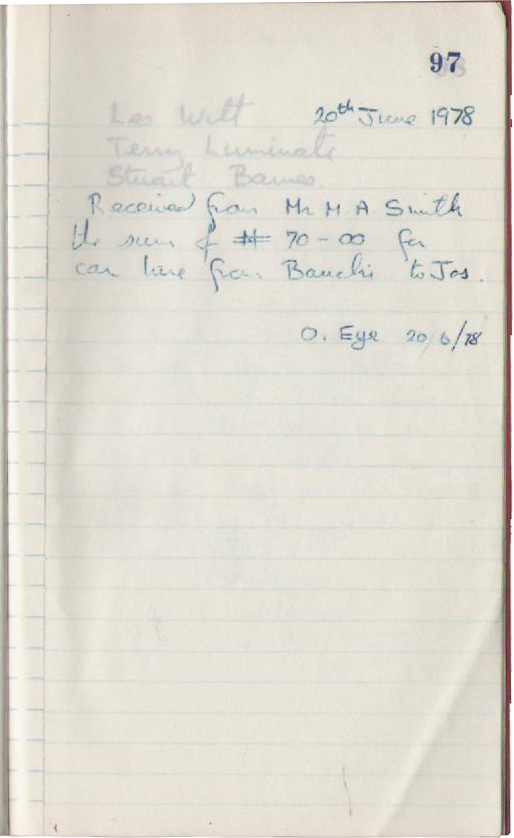 97
Les Witt 20th June 1978
Terry Luminate
Stuart Barnes.
Received from Mr M. A Smith
the sum of ₦ 70-00 for
car hire from Bauchi to Jos.
O. Eye 20/6/78